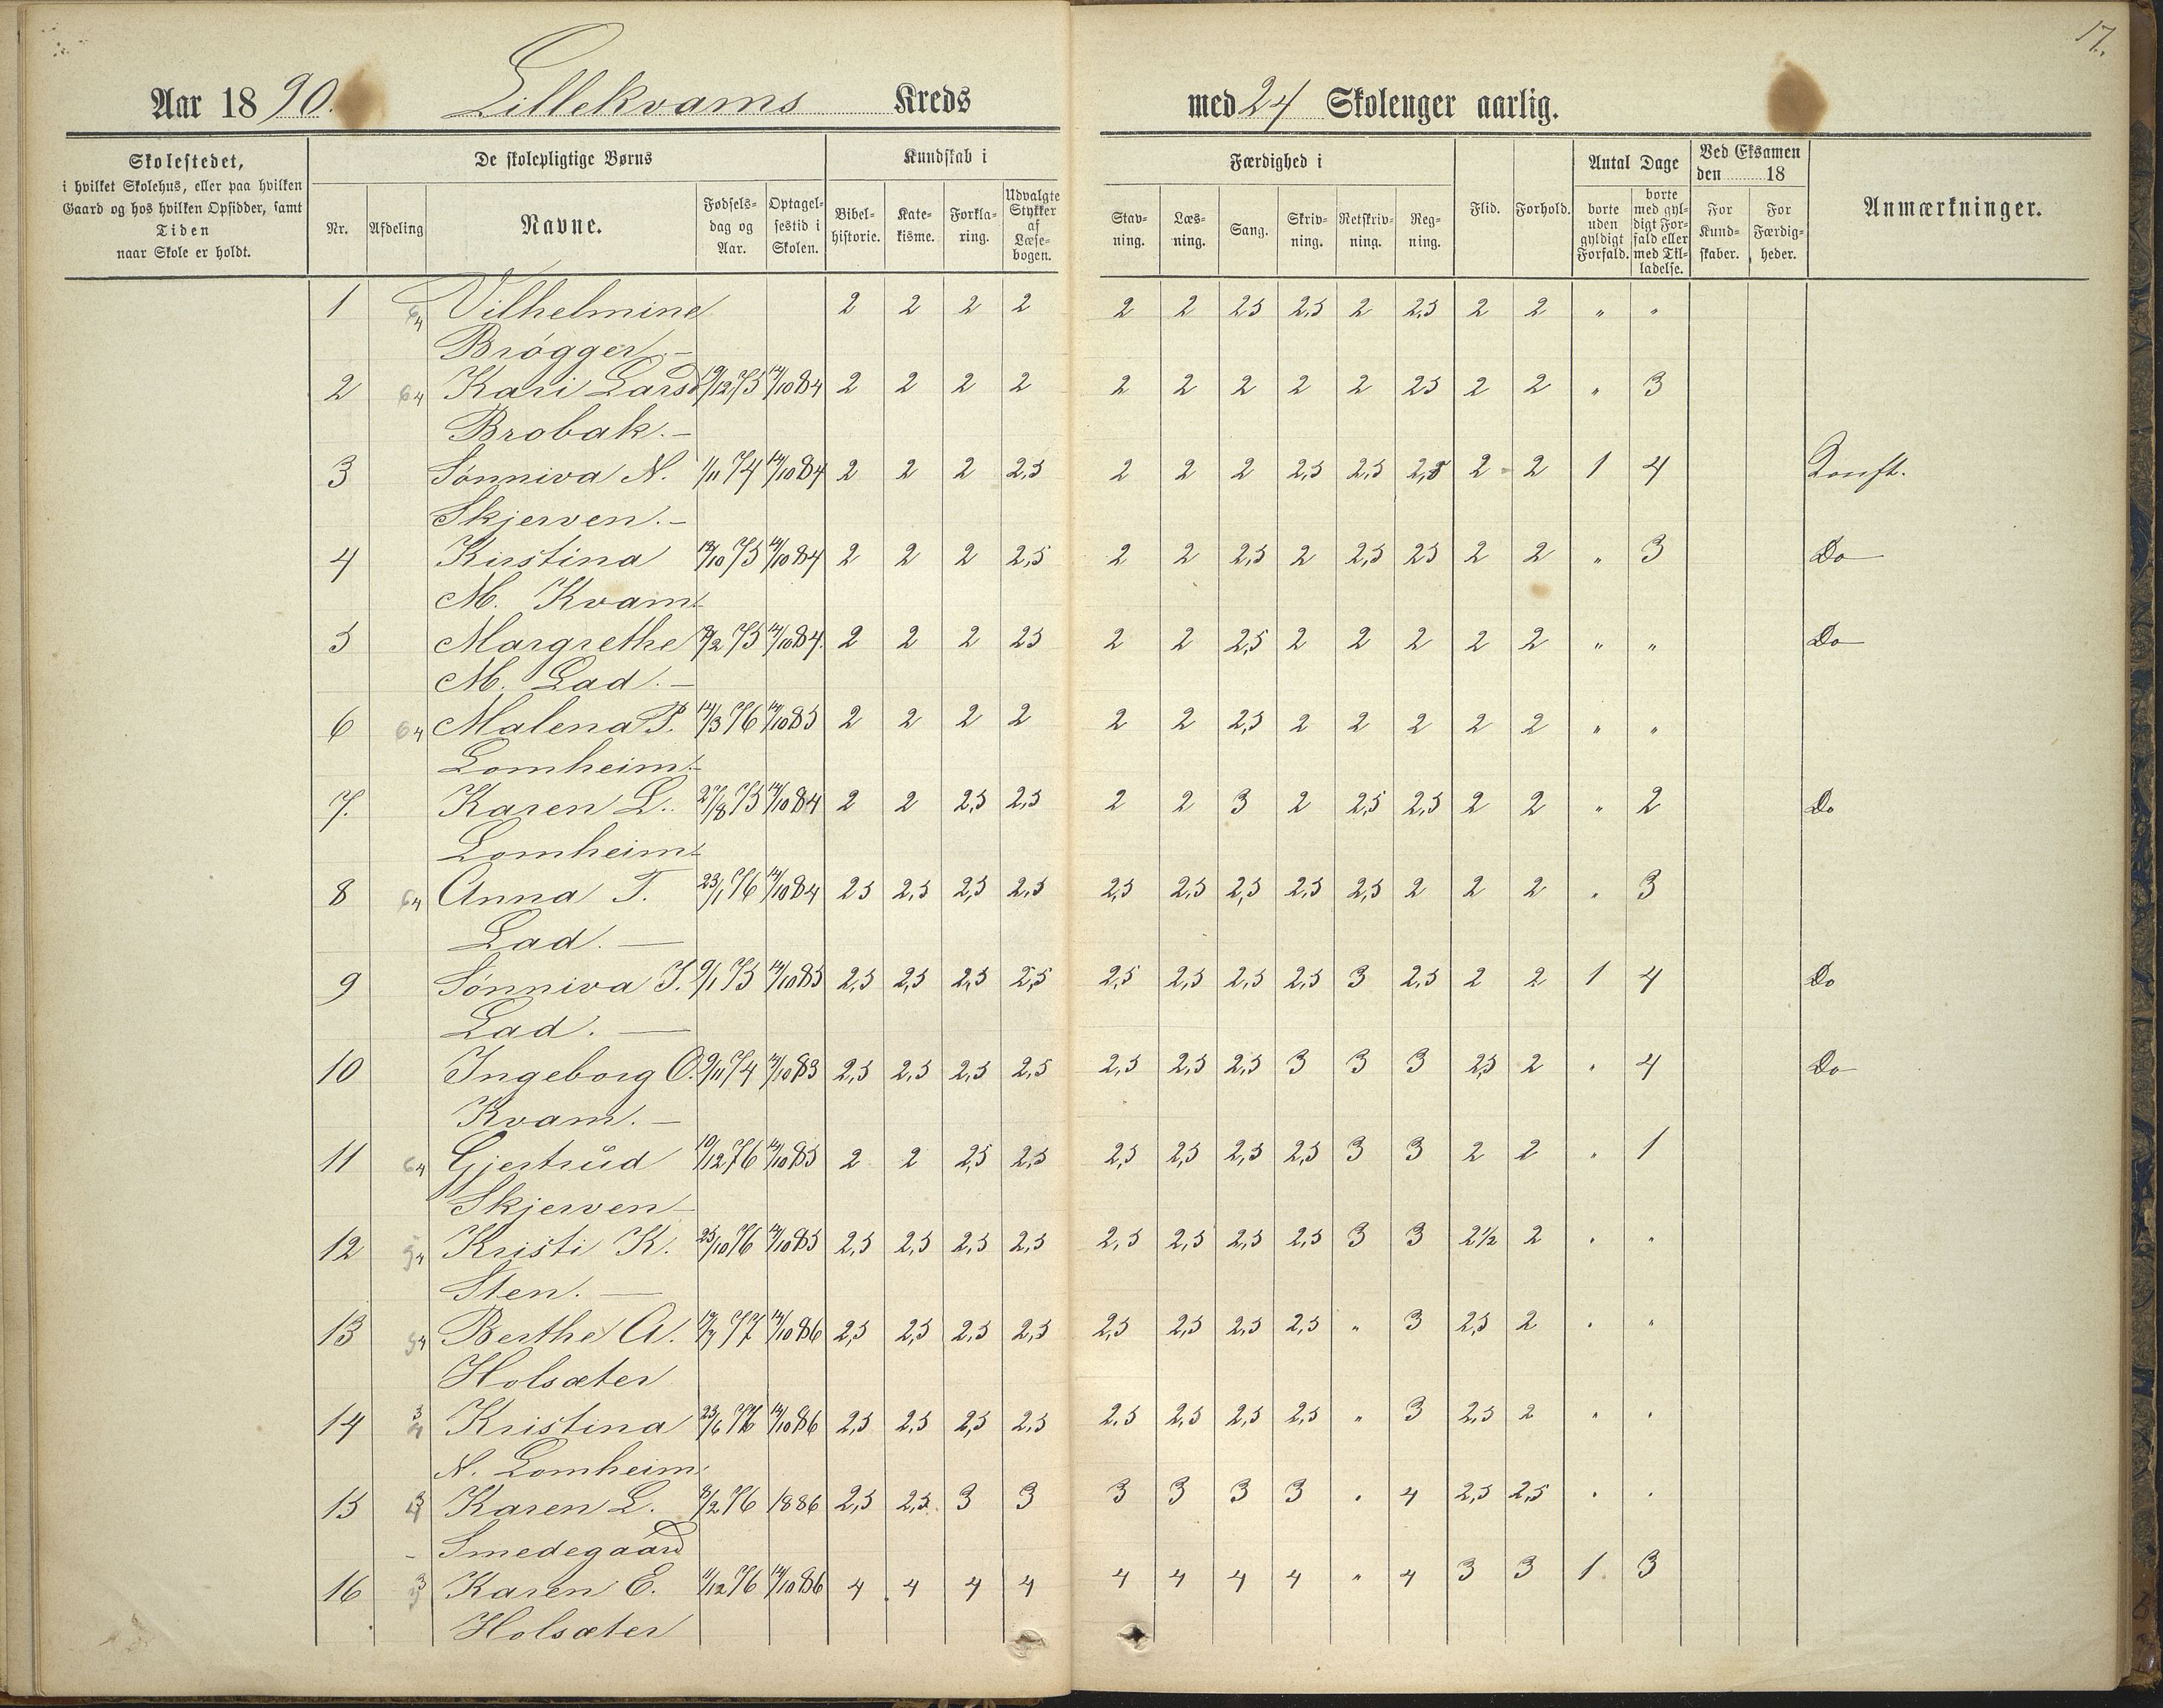 17.
Aar 1890. Lillekvams Kreds med 24 Skolenger aarlig.
Skolestedet,
i hvilket Skolehus, eller paa hvilken
Gaard og hos hvilken Opsidder, samt
Tiden
naar Skole er holdt.
De skolepligtige Børns
Nr. Afdeling Navne. Fødsels-dag og Aar. Optagel-sestid i Skolen.
Kundskab i
Bibel-historie. Kate-kisme. Forkla-ring. Udvalgte Stykker af Læse-bogen.
Færdighed i
Stav-ning. Læs-ning. Sang. Skriv-ning. Retskriv-ning. Reg-ning.
Flid. Forhold.
Antal Dage
borte uden gyldigt Forfald. borte med gyl-digt For-fald eller med Til-ladelse.
Ved Eksamen den 18
For Kund-skaber. For Færdig-heder.
Anmærkninger.
1 Vilhelmine 2 2 2 2 2 2 25 2,5 2 2,5 2 2 " "
Brøgger.-
2 Kari Larsd 12 75 14/10 84 2 2 2 2 2 2 2 2 2 25 2 2 " 3
Brobak.-
3 Sønniva N. 1/11 74 14/10 84 2 2 2 2,5 2 2 2 2,5 2,5 2,5 2 2 1 4 Konft.
Skjerven.-
4 Kirstina 10 75 14/10 84 2 2 2 2,5 2 2 2,5 2 2,5 25 2 2 " 3 Do
M. Kvam.-
5 Margrethe 2 75 14/10 84. 2 2 2 25 2 2 2,5 2 2 2 2 2 " " Do
M. Lad.-
6 Malena P. 14/3 76 14/10 85 2 2 2 2 2 2 2,5 2 2 2 2 2 " "
Lomheim.-
7. Karen L. 27/8 75 14/10 84 2 2 2,5 2,5 2 2 3 2 2,5 2,5 2 2 " 2 Do
Lomheim.-
8 Anna T. 23/1 76 14/10 84 25 2,5 2,5 2,5 2,5 2,5 2,5 2,5 2,5 2 2 2 " 3
Lad.-
9 Sønniva J. 9/1 75 14/10 85 2,5 2,5 2,5 2,5 2,5 2,5 2,5 2,5 3 2,5 2 2 1 4 Do
Lad.-
10 Ingeborg O. 9/11 74 14/10 83 2,5 2,5 2,5 2,5 2,5 2,5 2,5 3 3 3 2,5 2 " 4 Do
Kvam.-
11 Gjertrŭd 10/12 76 14/10 85 2 2 2,5 2,5 2,5 2,5 2,5 2,5 3 3 2 2 " 1
Skjerven-
12 Kristi K. 25/10 76 14/10 85 2,5 2,5 2,5 2,5 2,5 2,5 2,5 2,5 3 3 2½ 2 " "
Sten.-
13 Berthe A. 77 14/10 86 2,5 2,5 2,5 2,5 2,5 2,5 2,5 2,5 " 3 2,5 2 " "
Holsæter
14 Kristina 23/6 76 14/10 86 2,5 2,5 2,5 2,5 2,5 2,5 2,5 2,5 " 3 2,5 2 " "
N. Lomheim.
15 Karen L. 8/2 76 1886 2,5 2,5 3 3 3 3 3 3 " 4 2,5 2,5 " "
Smedegaard
16 Karen E. 11/12 76 14/10 86 4 4 4 4 4 4 4 4 " 4 3 3 1 3
Holsæter